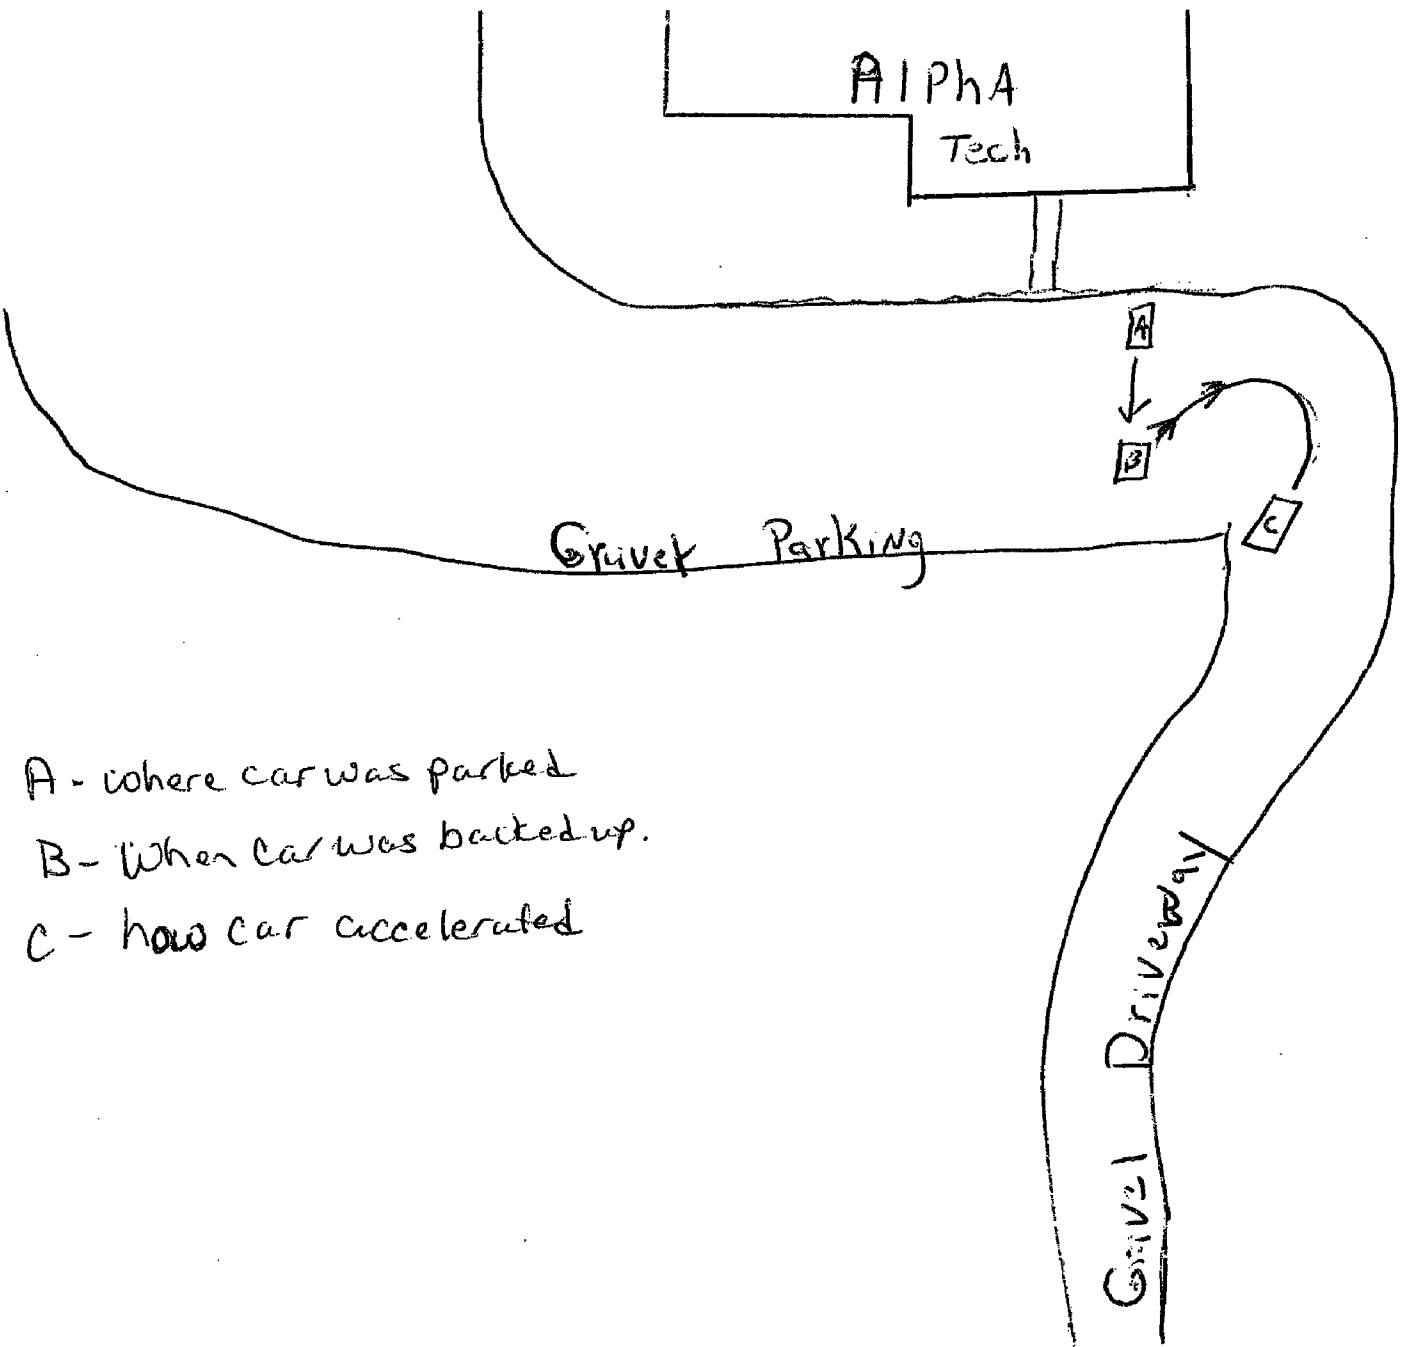 AlphA
Tech
A
B
C
Gravel Parking
A - where car was parked
B - When car was backed up.
C - how car accelerated
Gravel Driveway